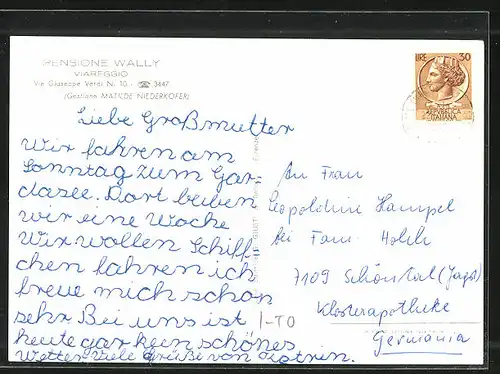 PENSIONE WALLY
VIAREGGIO
Via Giuseppe Verdi N. 10 - ☎ 3447
(Gestione MATILDE NIEDERKOFER)
Liebe Großmutter
Wir fahren am
Sonntag zum Gar-
dasee. Dort beiben
wir eine Woche
Wir wollen Schiff-
chen fahren ich
freue mich schon
sehr Bei uns ist
heute gar kein schönes
Wetter Viele Grüße von
I-TO
LIRE 30
REPVBBLICA
ITALIANA
An Frau
Leopoldine Hampel
bei Fam.
7109 Schöntal (Jagst)
Klosterapotheke
Germania